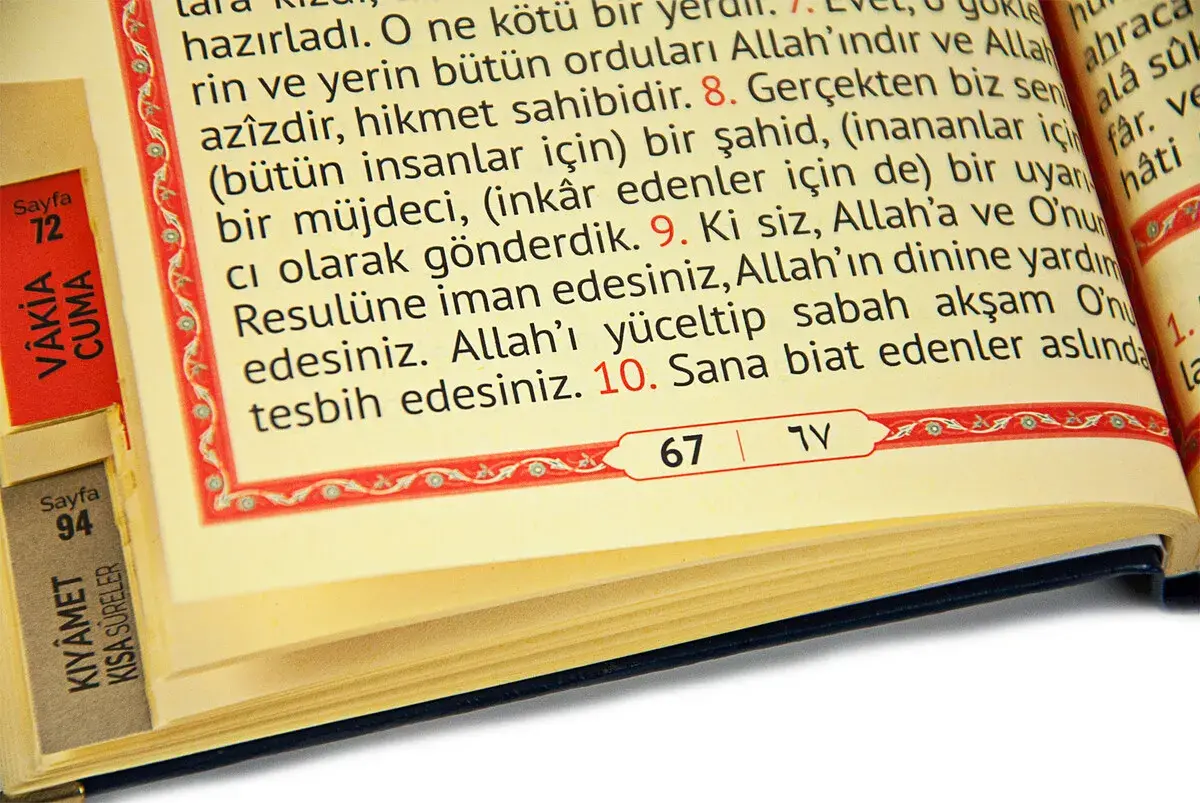 hazırladı. O ne kötü bir yerdir. 7. Evet, o gökle
rin ve yerin bütün orduları Allah'ındır ve Allah
azîzdir, hikmet sahibidir. 8. Gerçekten biz seni
(bütün insanlar için) bir şahid, (inananlar için
bir müjdeci, (inkâr edenler için de) bir uyarı-
cı olarak gönderdik. 9. Ki siz, Allah'a ve O'nun
Resulüne iman edesiniz, Allah'ın dinine yardım
edesiniz. Allah'ı yüceltip sabah akşam O'nu
tesbih edesiniz. 10. Sana biat edenler aslında
67 | ٦٧
Sayfa
72
VÂKİA
CUMA
Sayfa
94
KIYÂMET
KISA SÛRELER
ahraca
alâ sûk
fâr. ve
hâti
1.